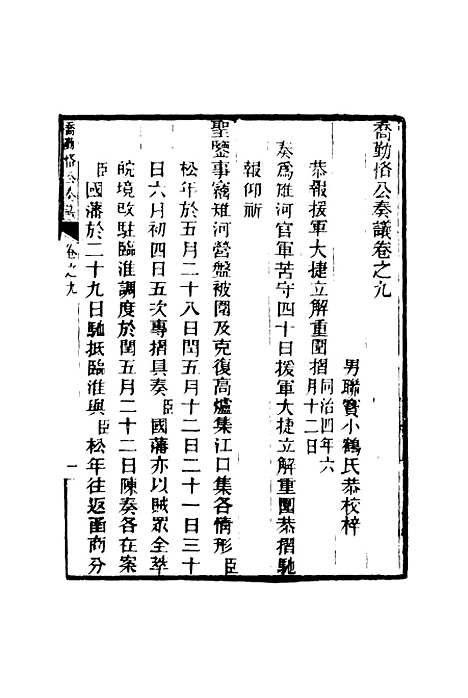 喬勤恪公奏議卷之九
男聯寶小鶴氏恭校梓
恭報援軍大捷立解重圍摺同治四年六月十二日
奏為雉河官軍苦守四十日援軍大捷立解重圍恭摺馳
報仰祈
聖鑒事竊雉河營盤被圍及克復高爐集江口集各情形臣
松年於五月二十八日閏五月十二日二十一日三十
日六月初四日五次專摺具奏臣國藩亦以賊眾全萃
皖境改駐臨淮調度於閏五月二十二日陳奏各在案
臣國藩於二十九日馳抵臨淮與臣松年往返函商分
喬勤恪公奏議
卷之九
一